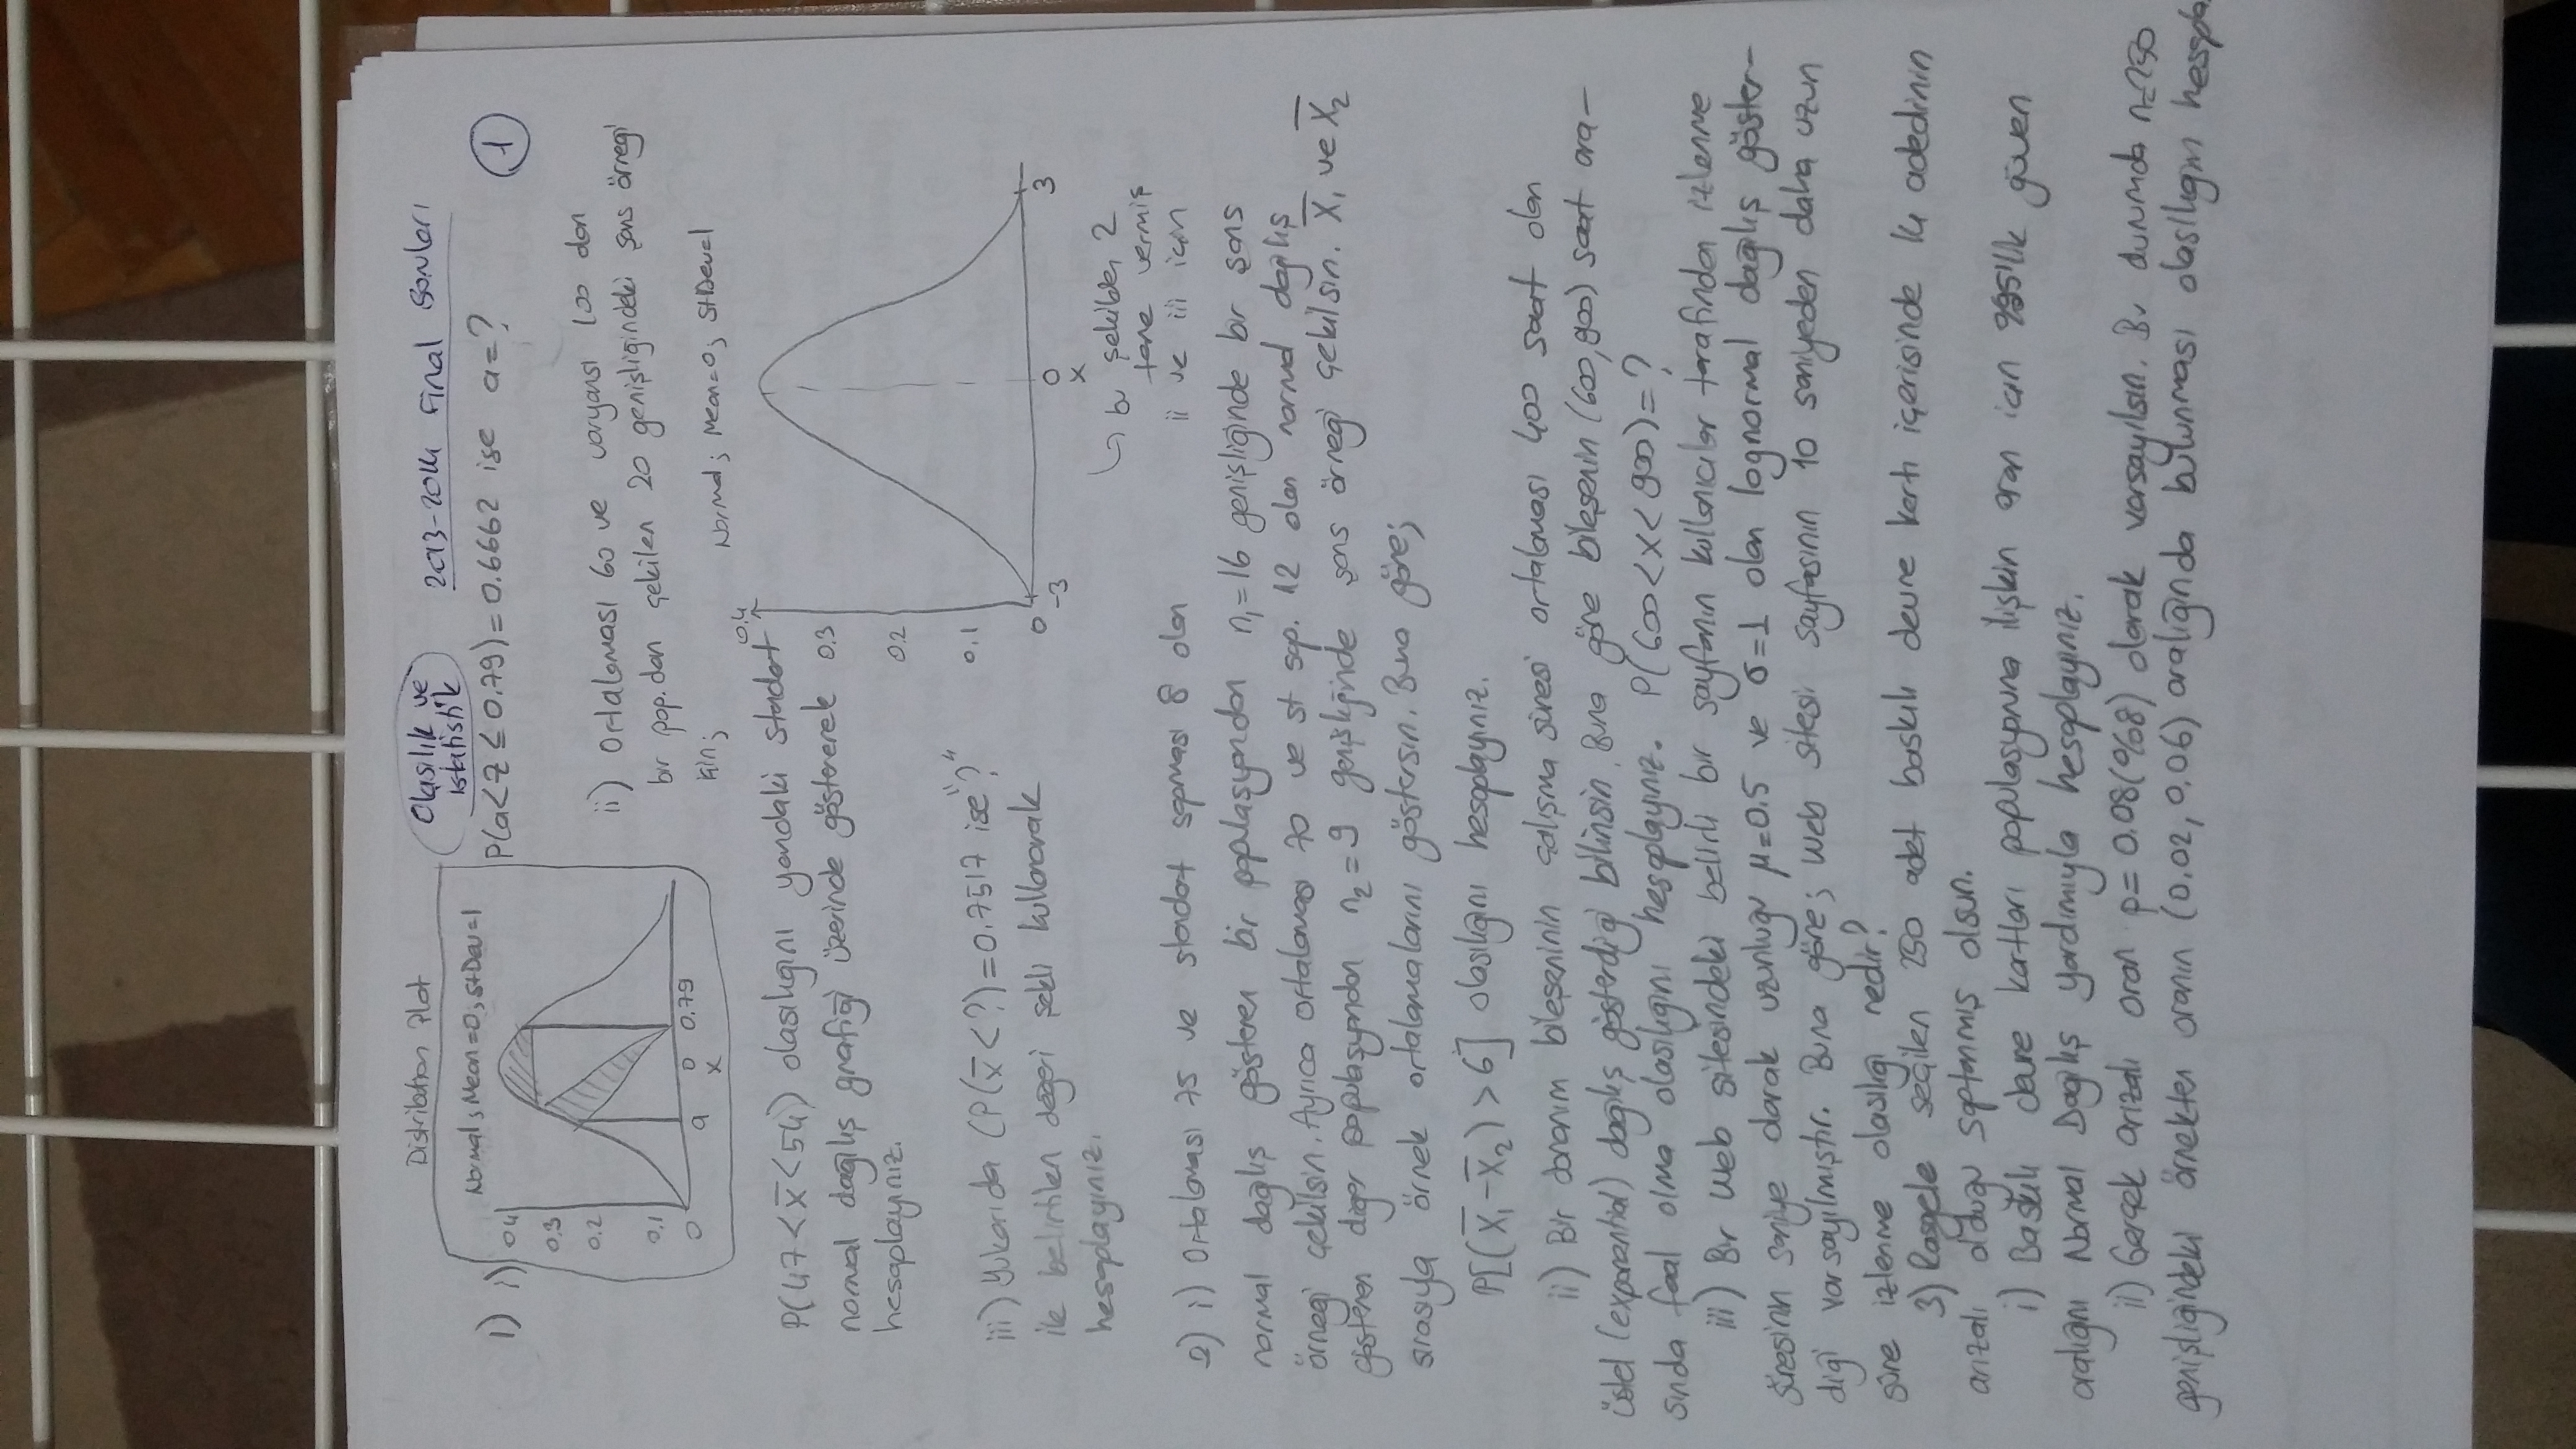 Distribution Plot
Olasılık ve
istatistik
2013-2014 Final Soruları
1
1) i)
Normal; Mean=0; StDev=1
0.4
0.3
0.2
0.1
0
a 0 0.79
x
P(a<Z≤0.79)=0.6662 ise a=?
ii) Ortalaması 60 ve varyansı 100 dan
bir pop.dan çekilen 20 genişliğindeki şans örneği
için;
P(47<x̄<54) olasılığını yandaki standart
normal dağılış grafiği üzerinde göstererek
hesaplayınız.
Normal; Mean=0; StDev=1
0.4
0.3
0.2
0.1
0
-3 0 3
x
↳ bu şekilden 2
tane vermiş
ii ve iii için
iii) Yukarıda (P(x̄<?)=0.7517 ise "?"
ile belirtilen değeri şekli kullanarak
hesaplayınız.
2) i) Ortalaması 75 ve standart sapması 8 olan
normal dağılış gösteren bir populasyondan n₁=16 genişliğinde bir şans
örneği çekilsin. Ayrıca ortalaması 70 ve st sap. 12 olan normal dağılış
gösteren diğer populasyondan n₂=9 genişliğinde şans örneği çekilsin. X̄₁ ve X̄₂
sırasıyla örnek ortalamalarını göstersin. Buna göre;
P[(X̄₁-X̄₂)>6] olasılığını hesaplayınız.
ii) Bir donanım bileşeninin çalışma süresi ortalaması 400 saat olan
üstel (exponential) dağılış gösterdiği bilinsin. Buna göre bileşenin (600,900) saat ara-
sında faal olma olasılığını hesaplayınız. P(600<x<900)=?
iii) Bir web sitesindeki belirli bir sayfanın kullanıcılar tarafından izlenme
süresinin saniye olarak uzunluğu μ=0.5 ve σ=1 olan lognormal dağılış göster-
diği varsayılmıştır. Buna göre; web sitesi sayfasının 10 saniyeden daha uzun
süre izlenme olasılığı nedir?
3) Rasgele seçilen 250 adet baskılı devre kartı içerisinde 14 adedinin
arızalı olduğu saptanmış olsun.
i) Baskılı devre kartları populasyonuna ilişkin oran için %95'lik güven
aralığını Normal Dağılış yardımıyla hesaplayınız.
ii) Gerçek arızalı oran p=0.08(%8) olarak varsayılsın. Bu durumda n=250
genişliğindeki örnekten oranın (0.02, 0.06) aralığında bulunması olasılığını hesapla